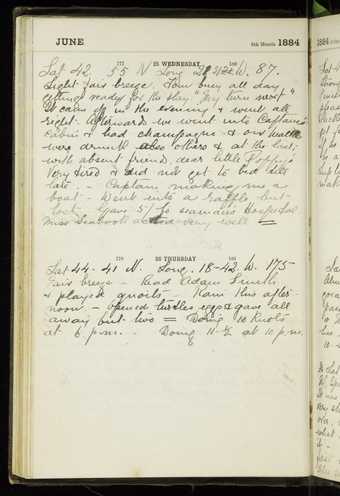 JUNE 6th Month 1884
177 25 WEDNESDAY 189
Lat 42. 55 N Long W. 87.
Light fair breeze. Tom busy all day
getting ready for the play "My turn next"
It came off in the evening & went all
right. Afterwards we went into Captain's
Cabin & had champagne & our
were drunk also others & at the last
with absent friend, dear little Poppy.
Very tired & did not get to bed till
late. - Captain making me a
boat - Went into a raffle but
lost. Gave 5/ to seamans Hospital
Miss very well =
26 THURSDAY 188
Lat 44. 41 N Long. 18-42. W. 175
Fair breeze - Read Adam Smith
& played quoits - Ram this after-
noon - Opened eggs & gave all
away but two = Doing 10 knots
at 6 p.m. - Doing 11-½ at 10 p.m.
1884